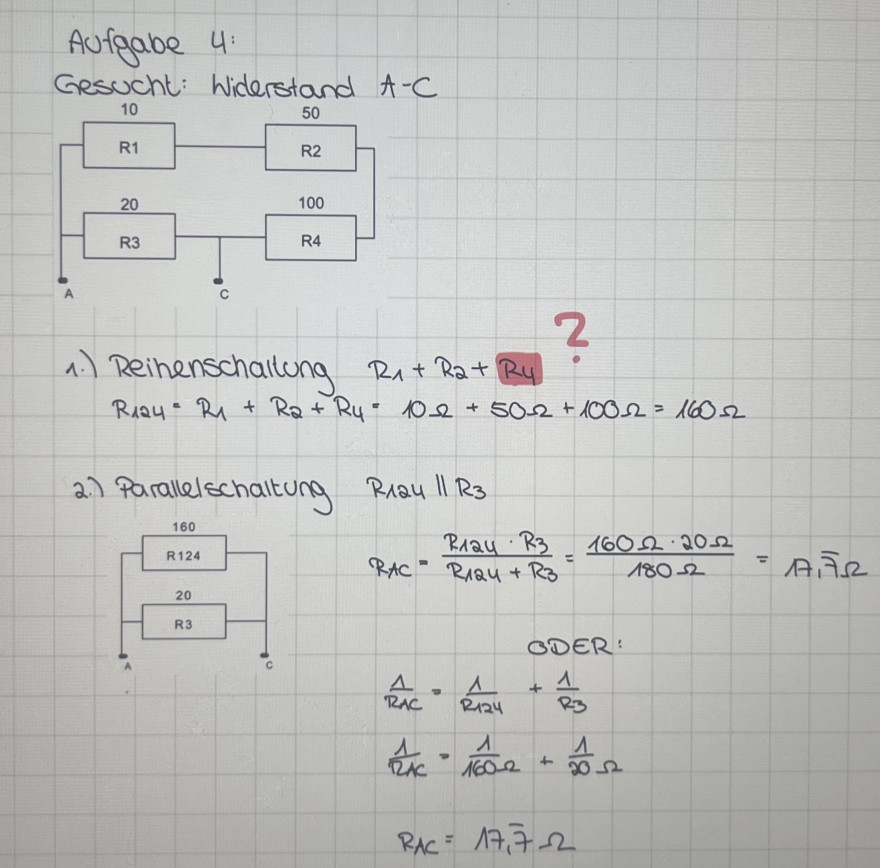 Aufgabe 4:
Gesucht: Widerstand A-C
10 50
R1 R2
20 100
R3 R4
A C
?
1.) Reihenschaltung R1 + R2 + R4
R124 = R1 + R2 + R4 = 10Ω + 50Ω + 100Ω = 160Ω
2.) Parallelschaltung R124 || R3
160
R124
20
R3
A C
RAC = R124 · R3 / R124 + R3 = 160Ω · 20Ω / 180Ω = 17,7̅Ω
ODER:
1/RAC = 1/R124 + 1/R3
1/RAC = 1/160Ω + 1/20Ω
RAC = 17,7̅Ω